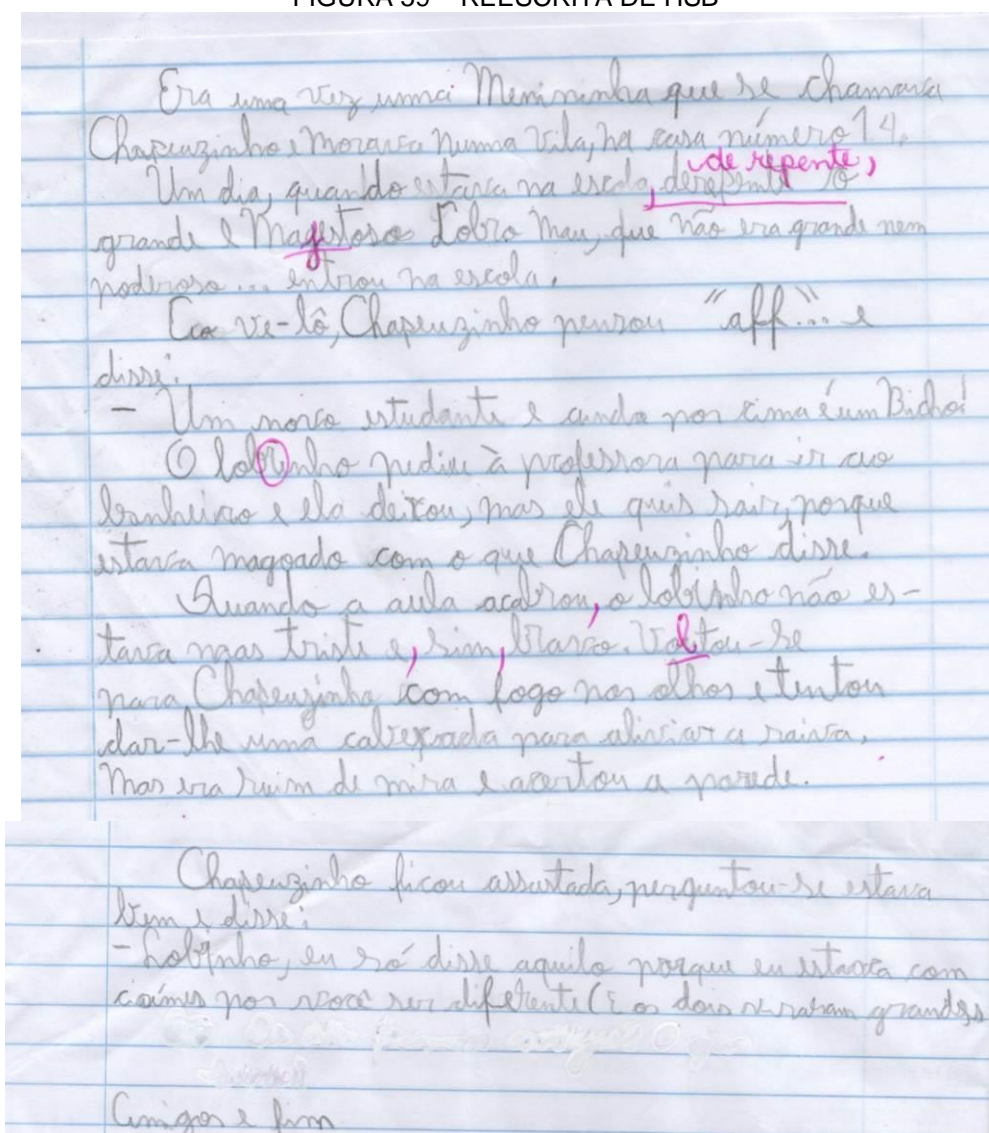 FIGURA 39 – REESCRITA DE HSB
Era uma vez uma Menininha que se chamava
Chapeuzinho e morava numa Vila, na casa número 14.
de repente,
Um dia, quando estava na escola, derepente o
grande e Magestoso Lobo Mau, que não era grande nem
poderoso... entrou na escola.
Ao ve-lô, Chapeuzinho pensou "aff"... e
disse:
- Um novo estudante e ainda por cima é um Bicho!
O lobinho pediu à professora para ir ao
banheiro e ela deixou, mas ele quis sair, porque
estava magoado com o que Chapeuzinho disse.
Quando a aula acabou, o lobinho não es-
tava mais triste e, sim, bravo. Voltou-se
para Chapeuzinho com fogo nos olhos e tentou
dar-lhe uma cabeçada para aliviar a raiva,
Mas era ruim de mira e acertou a parede.
Chapeuzinho ficou assustada, perguntou-se estava
bem e disse:
- Lobinho, eu só disse aquilo porque eu estava com
ciúmes por você ser diferente (E os dois viraram grandes
Amigos e fim